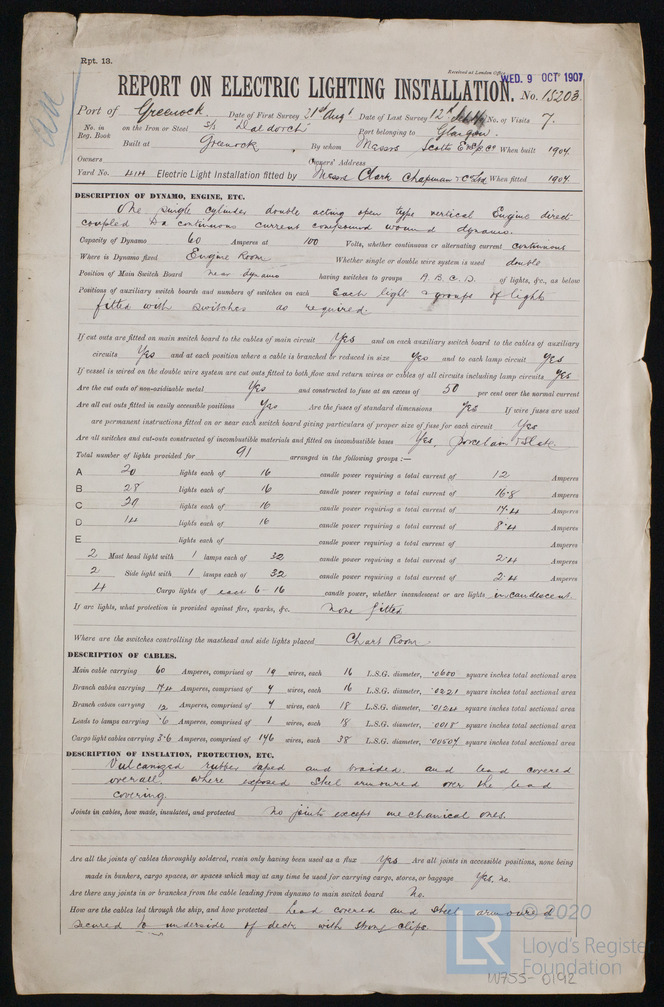 Rpt. 13.
Received at London Office
WED. 9 OCT 1907
REPORT ON ELECTRIC LIGHTING INSTALLATION. No. 15203
Port of Greenock Date of First Survey 21st Augt Date of Last Survey 12th No. of Visits 7.
No. in Reg. Book on the Iron or Steel S/S Daldorch Port belonging to Glasgow
Built at Greenock By whom Messrs Scotts E&S Co When built 1907
Owners Owners' Address
Yard No. 414 Electric Light Installation fitted by Messrs Clark Chapman & Co Ltd When fitted 1907
DESCRIPTION OF DYNAMO, ENGINE, ETC.
One single cylinder double acting open type vertical Engine direct
coupled to a continuous current compound wound dynamo.
Capacity of Dynamo 60 Amperes at 100 Volts, whether continuous or alternating current continuous
Where is Dynamo fixed Engine Room Whether single or double wire system is used double
Position of Main Switch Board near dynamo having switches to groups A. B. C. D. of lights, &c., as below
Positions of auxiliary switch boards and numbers of switches on each Each light & groups of lights
fitted with switches as required.
If cut outs are fitted on main switch board to the cables of main circuit Yes and on each auxiliary switch board to the cables of auxiliary
circuits Yes and at each position where a cable is branched or reduced in size Yes and to each lamp circuit Yes
If vessel is wired on the double wire system are cut outs fitted to both flow and return wires or cables of all circuits including lamp circuits Yes
Are the cut outs of non-oxidizable metal Yes and constructed to fuse at an excess of 50 per cent over the normal current
Are all cut outs fitted in easily accessible positions Yes Are the fuses of standard dimensions Yes If wire fuses are used
are permanent instructions fitted on or near each switch board giving particulars of proper size of fuse for each circuit Yes
Are all switches and cut-outs constructed of incombustible materials and fitted on incombustible bases Yes, Porcelain & Slate
Total number of lights provided for 91 arranged in the following groups :—
A 20 lights each of 16 candle power requiring a total current of 12 Amperes
B 28 lights each of 16 candle power requiring a total current of 16.8 Amperes
C 29 lights each of 16 candle power requiring a total current of 17.4 Amperes
D 14 lights each of 16 candle power requiring a total current of 8.4 Amperes
E lights each of candle power requiring a total current of Amperes
2 Mast head light with 1 lamps each of 32 candle power requiring a total current of 2.4 Amperes
2 Side light with 1 lamps each of 32 candle power requiring a total current of 2.4 Amperes
4 Cargo lights of each 6-16 candle power, whether incandescent or arc lights incandescent
If arc lights, what protection is provided against fire, sparks, &c. None fitted
Where are the switches controlling the masthead and side lights placed Chart Room
DESCRIPTION OF CABLES.
Main cable carrying 60 Amperes, comprised of 19 wires, each 16 L.S.G. diameter, .0600 square inches total sectional area
Branch cables carrying 17.4 Amperes, comprised of 7 wires, each 16 L.S.G. diameter, .0221 square inches total sectional area
Branch cables carrying 12 Amperes, comprised of 7 wires, each 18 L.S.G. diameter, .0124 square inches total sectional area
Leads to lamps carrying .6 Amperes, comprised of 1 wires, each 18 L.S.G. diameter, .0018 square inches total sectional area
Cargo light cables carrying 3.6 Amperes, comprised of 146 wires, each 38 L.S.G. diameter, .00507 square inches total sectional area
DESCRIPTION OF INSULATION, PROTECTION, ETC.
Vulcanized rubber taped and braided and lead covered
overall. where exposed steel armoured over the lead
covering
Joints in cables, how made, insulated, and protected No joints except mechanical ones.
Are all the joints of cables thoroughly soldered, resin only having been used as a flux Yes Are all joints in accessible positions, none being
made in bunkers, cargo spaces, or spaces which may at any time be used for carrying cargo, stores, or baggage Yes, no.
Are there any joints in or branches from the cable leading from dynamo to main switch board No.
How are the cables led through the ship, and how protected Lead covered and steel armoured
secured to underside of deck with strong clips.
LR © 2020
Lloyd's Register
Foundation
W755-0192